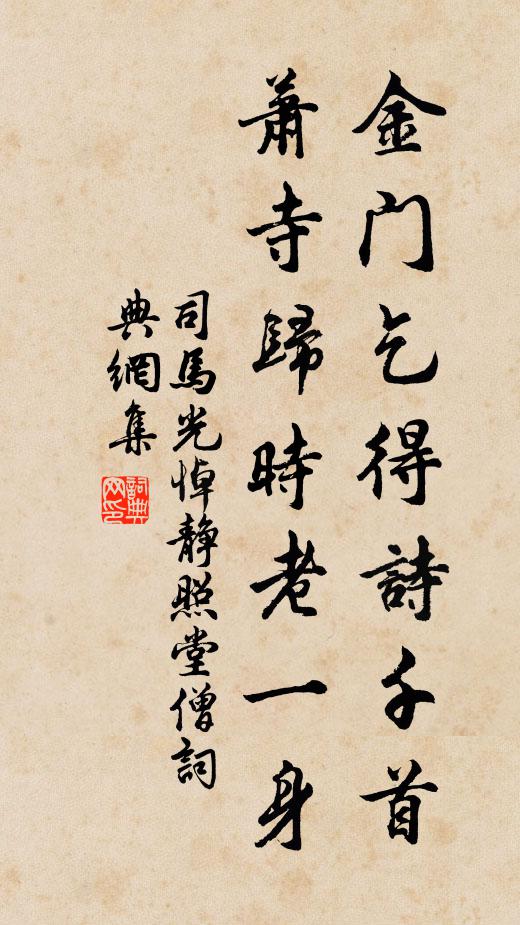 金门乞得詩千首
蕭寺歸時老一身
司馬光悼靜照堂僧詞
典網集
詞典網印